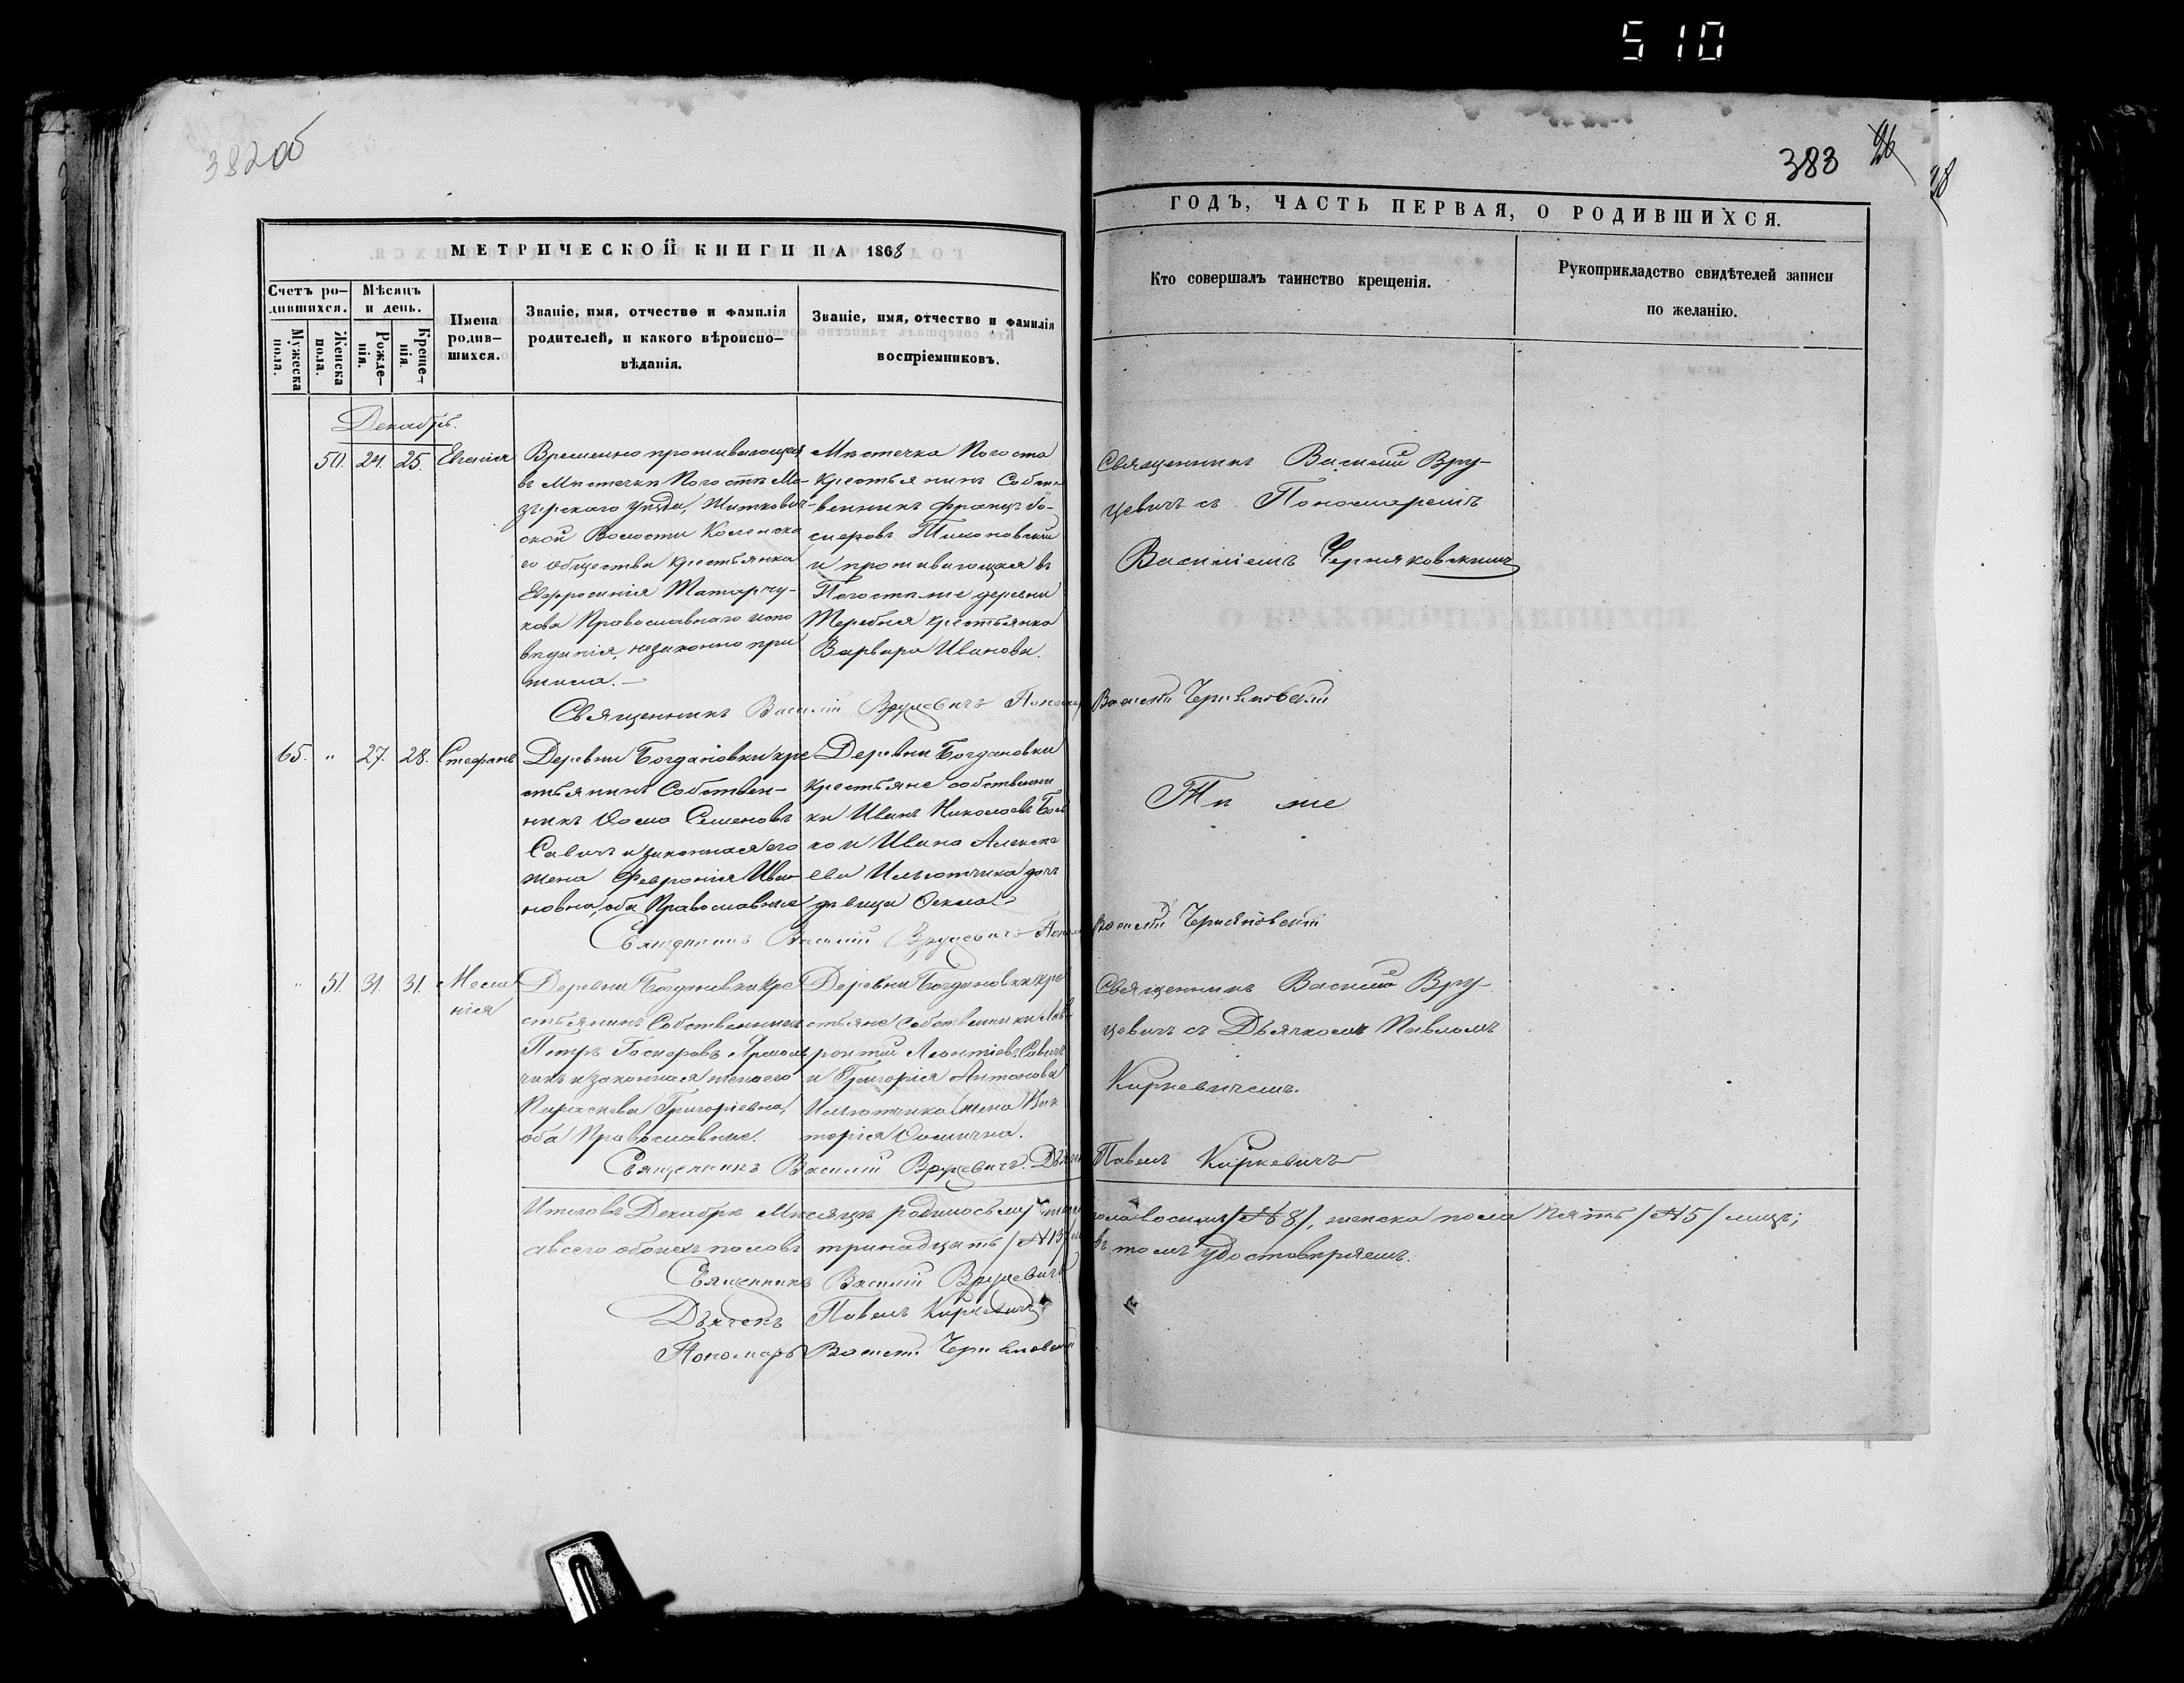 510
382 об
383
26
28
МЕТРИЧЕСКОЙ КНИГИ НА 1868
ГОДЪ, ЧАСТЬ ПЕРВАЯ, О РОДИВШИХСЯ.
Счетъ ро-
дившихся.
Мужеска
пола.
Женска
пола.
Мѣсяцъ
и день.
Рожде-
нія.
Креще-
нія.
Имена
родив-
шихся.
Званіе, имя, отчество и фамилія
родителей, и какого вѣроиспо-
вѣданія.
Званіе, имя, отчество и фамилія
воспріемниковъ.
Кто совершалъ таинство крещенія.
Рукоприкладство свидѣтелей записи
по желанію.
Декабрь.
50. 24. 25. Евгенія
Временно проживающая
въ Мѣстечкѣ Погостѣ Мо-
зырскаго уѣзда, Житкович-
ской Волости Коленска
го общества крестьянка
Евфросинія Татарчу-
кова Православнаго испо
вѣданія, незаконно при
жила.
Мѣстечка Погоста
крестьянинъ Собст
венникъ Францъ
Тихановскій
и проживающая въ
Погостѣ же деревни
Теребня крестьянка
Варвара Иванова.
Священникъ Василій Вру-
цевичъ съ Пономаремъ
Василіемъ Черняковскимъ
Священникъ Василій Вруцевичъ Пономарь Василій Черняковскій
65. " 27. 28. Стефанъ
Деревни Богдановки кре
стьянинъ Собствен-
никъ Ѳома Семеновъ
Савичъ и законная его
жена Февронія Ива-
новна, оба Православные
Деревни Богдановки
крестьяне собственни
ки Иванъ Николаевъ
и Ивана Алексѣ
ева Ильютчика дочь
девица
Тѣ же
Священникъ Василій Вруцевичъ Пономарь Василій Черняковскій
" 51. 31. 31. Мела
нія
Деревни Богдановки кре
стьянинъ Собственникъ
Петръ Гаспаровъ Ярмоль
чикъ и законная жена его
Параскева Григоріевна,
оба Православные.
Деревни Богдановки кре
стьяне собственники Лав
рентій Леонтіевъ Савичъ
и Григорія Антонова
Ильютчика жена Вик
торія Ѳомична.
Священникъ Василій Вру-
цевичъ съ Дьячкомъ Павломъ
Киркевичемъ.
Священникъ Василій Вруцевичъ. Дьячекъ Павелъ Киркевичъ
Итого въ Декабрѣ Мѣсяцѣ родилось мужеска пола восемь /№8/, женска пола пять /№5/ лицъ;
а всего обоихъ половъ тринадцать /№13/ въ томъ удостовѣряемъ.
Священникъ Василій Вруцевичъ
Дьячекъ Павелъ Киркевичъ
Пономарь Василій Черняковскій